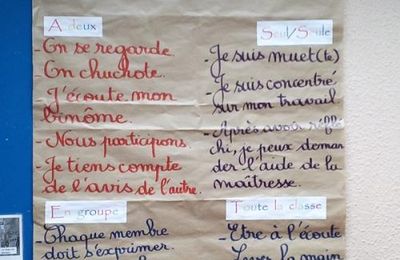 A deux
- On se regarde
- On chuchote.
- J'écoute mon
binôme.
- Nous participons.
- Je tiens compte
de l'avis de l'autre.
Seul/Seule
- Je suis muet(te)
- Je suis concentré
sur mon travail
- Après avoir réflé
chi, je peux deman
der l'aide de la
maîtresse.
En groupe
- Chaque membre
doit s'exprimer.
Toute la classe
- Etre à l'écoute
- Lever la main